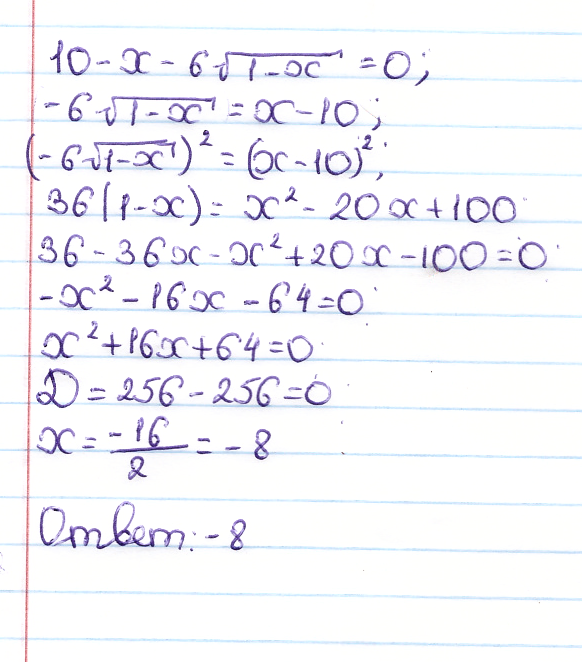 10-x-6√(1-x) = 0;
-6√(1-x) = x-10;
(-6√(1-x))² = (x-10)²;
36(1-x) = x² - 20x + 100
36 - 36x - x² + 20x - 100 = 0
-x² - 16x - 64 = 0
x² + 16x + 64 = 0
D = 256 - 256 = 0
x = -16/2 = -8
Ответ: -8